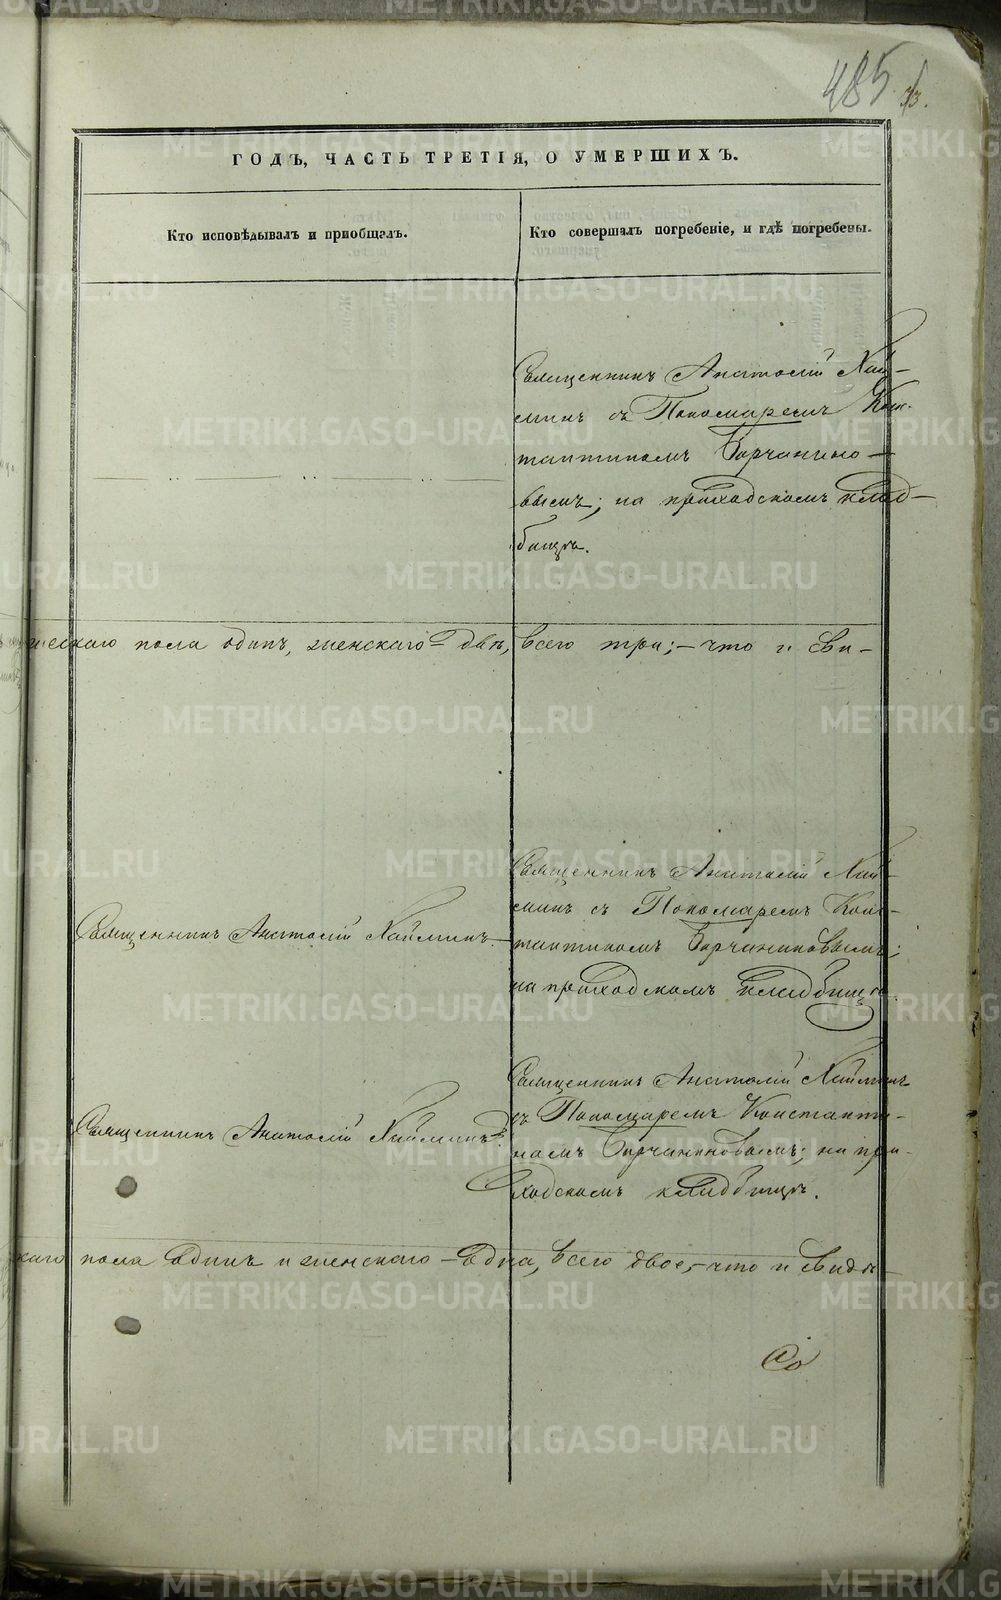 485
ГОДЪ, ЧАСТЬ ТРЕТІЯ, О УМЕРШИХЪ.
Кто исповѣдывалъ и пріобщалъ.
Кто совершалъ погребеніе, и гдѣ погребены.
Священникъ Анатолій Хай-
минъ съ Пономаремъ Конс-
тантиномъ Борчанино-
вымъ; на приходскомъ клад-
бищѣ.
ческаго пола одинъ, женскаго - двѣ, всего три; - что и сви-
Священникъ Анатолій Хайминъ.
Священникъ Анатолій Хай-
минъ съ Пономаремъ Конс-
тантиномъ Борчаниновымъ;
на приходскомъ кладбищѣ.
Священникъ Анатолій Хайминъ.
Священникъ Анатолій Хайминъ
съ Пономаремъ Константи-
номъ Борчаниновымъ; на при-
ходскомъ кладбищѣ.
каго пола одинъ и женскаго - одна, всего двое, - что и свидѣ-
Со
METRIKI.GASO-URAL.RU